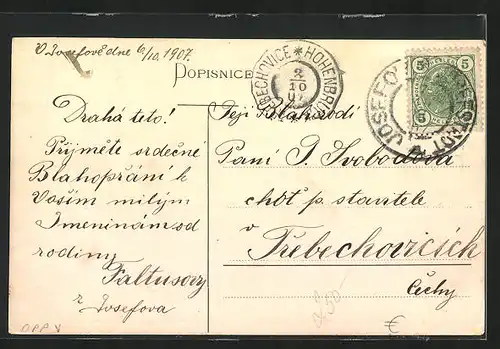 V Josefově dne 6/10 1907.
POPISNICE
TŘEBECHOVICE * HOHENBRUCK
8
10
07
5 5
5 5
JOSEFOV
JOSEFSTADT
Drahá teto!
Přijměte srdečné
Blahopřání k
Vaším milým
Jmeninám od
rodiny
Faltusovy
z Josefova
Její Blahorodí
Paní J. Svobodová
chôť p. stavitele
v
Třebechovicích
Čechy
DPP V
€